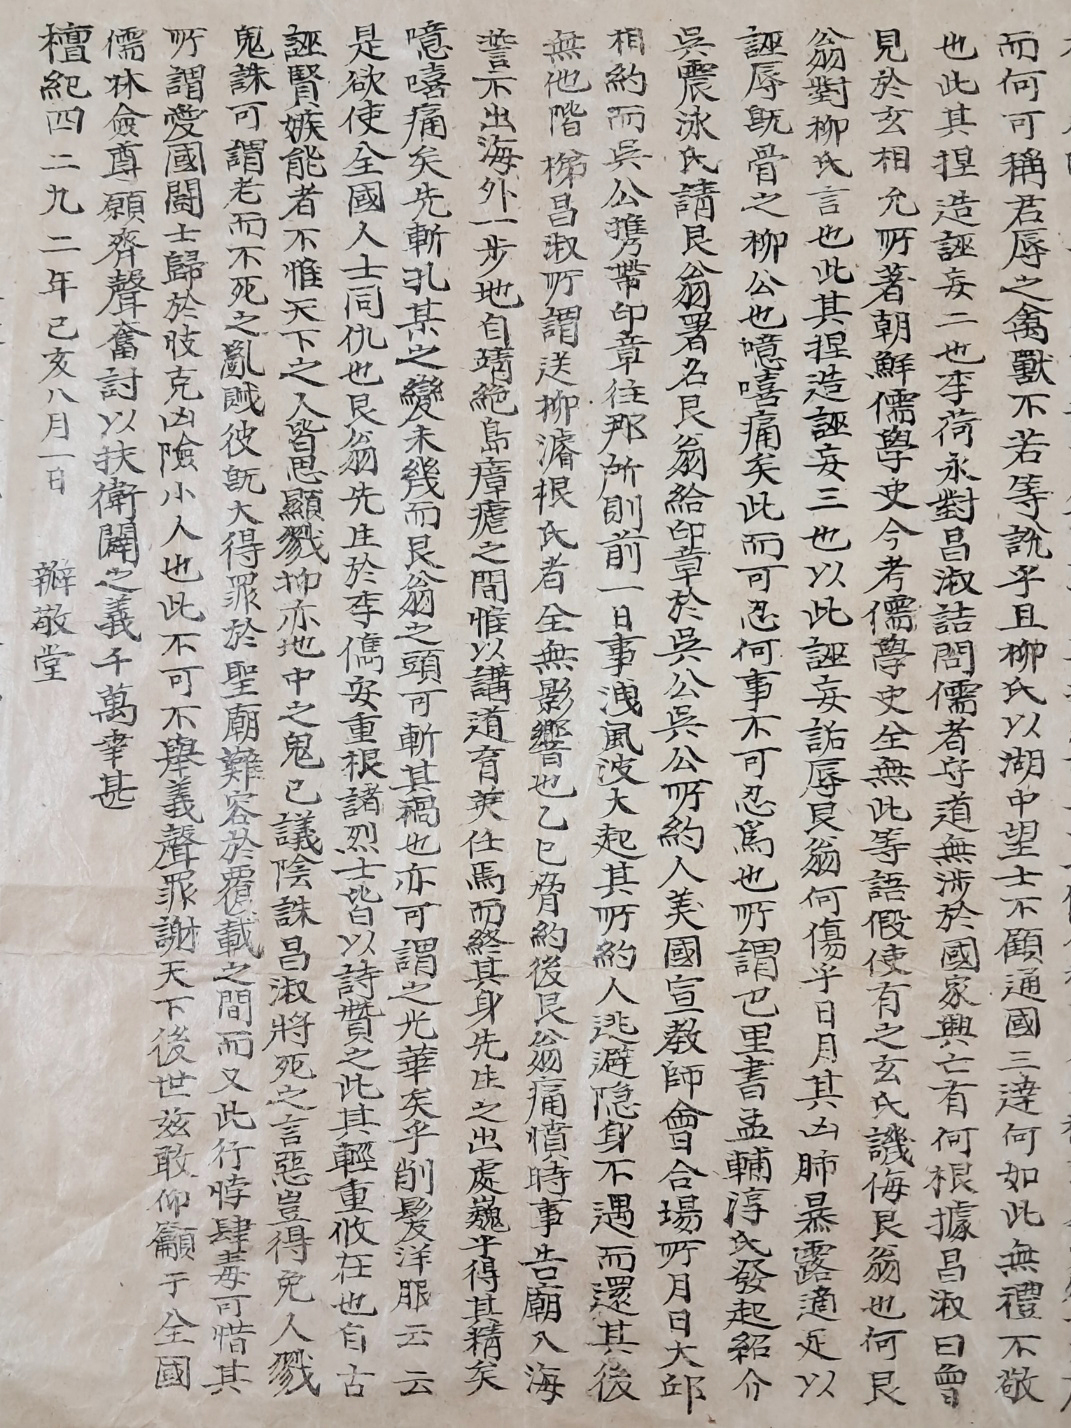 而何可稱君辱之禽獸不若等說乎且柳氏以湖中望士不顧通國三達何如此無禮不敬
也此其捏造誣妄二也李荷永對昌淑詰問儒者守道無涉於國家興亡有何根據昌淑曰曾
見於玄相允所著朝鮮儒學史今考儒學史全無此等語假使有之玄氏譏侮艮翁也何艮
翁對柳氏言也此其捏造誣妄三也以此誣妄詬辱艮翁何傷乎日月其凶肺暴露適足以
誣辱旣骨之柳公也噫嘻痛矣此而可忍何事不可忍爲也所謂巴里書孟輔淳氏發起紹介
吳震泳氏請艮翁署名艮翁給印章於吳公吳公所約人美國宣教師會合場所月日大邱
相約而吳公攜帶印章往那所則前一日事洩風波大起其所約人逃避隐身不遇而還其後
無他階梯昌淑所謂送柳濬根氏者全無影響也乙巳脅約後艮翁痛憤時事告廟入海
誓不出海外一步地自靖絶島瘴瘧之間惟以講道育英任焉而終其身先生之出處巍乎得其精矣
噫嘻痛矣先斬孔某之變未幾而艮翁之頭可斬其禍也亦可謂之光華矣乎削髮洋服云云
是欲使全國人士同仇也艮翁先生於李儁安重根諸烈士皆以詩贊之此其輕重攸在也自古
誣賢嫉能者不惟天下之人皆思顯戮抑亦地中之鬼已議陰誅昌淑將死之言惡豈得免人戮
鬼誅可謂老而不死之亂賊彼旣大得罪於聖廟難容於覆載之間而又此行悖肆毒可惜其
所謂愛國鬪士歸於忮克凶險小人也此不可不擧義聲罪謝天下後世玆敢仰籲于全國
儒林僉尊願齊聲奮討以扶衛闢之義千萬幸甚
檀紀四二九二年己亥八月一日 辦敬堂